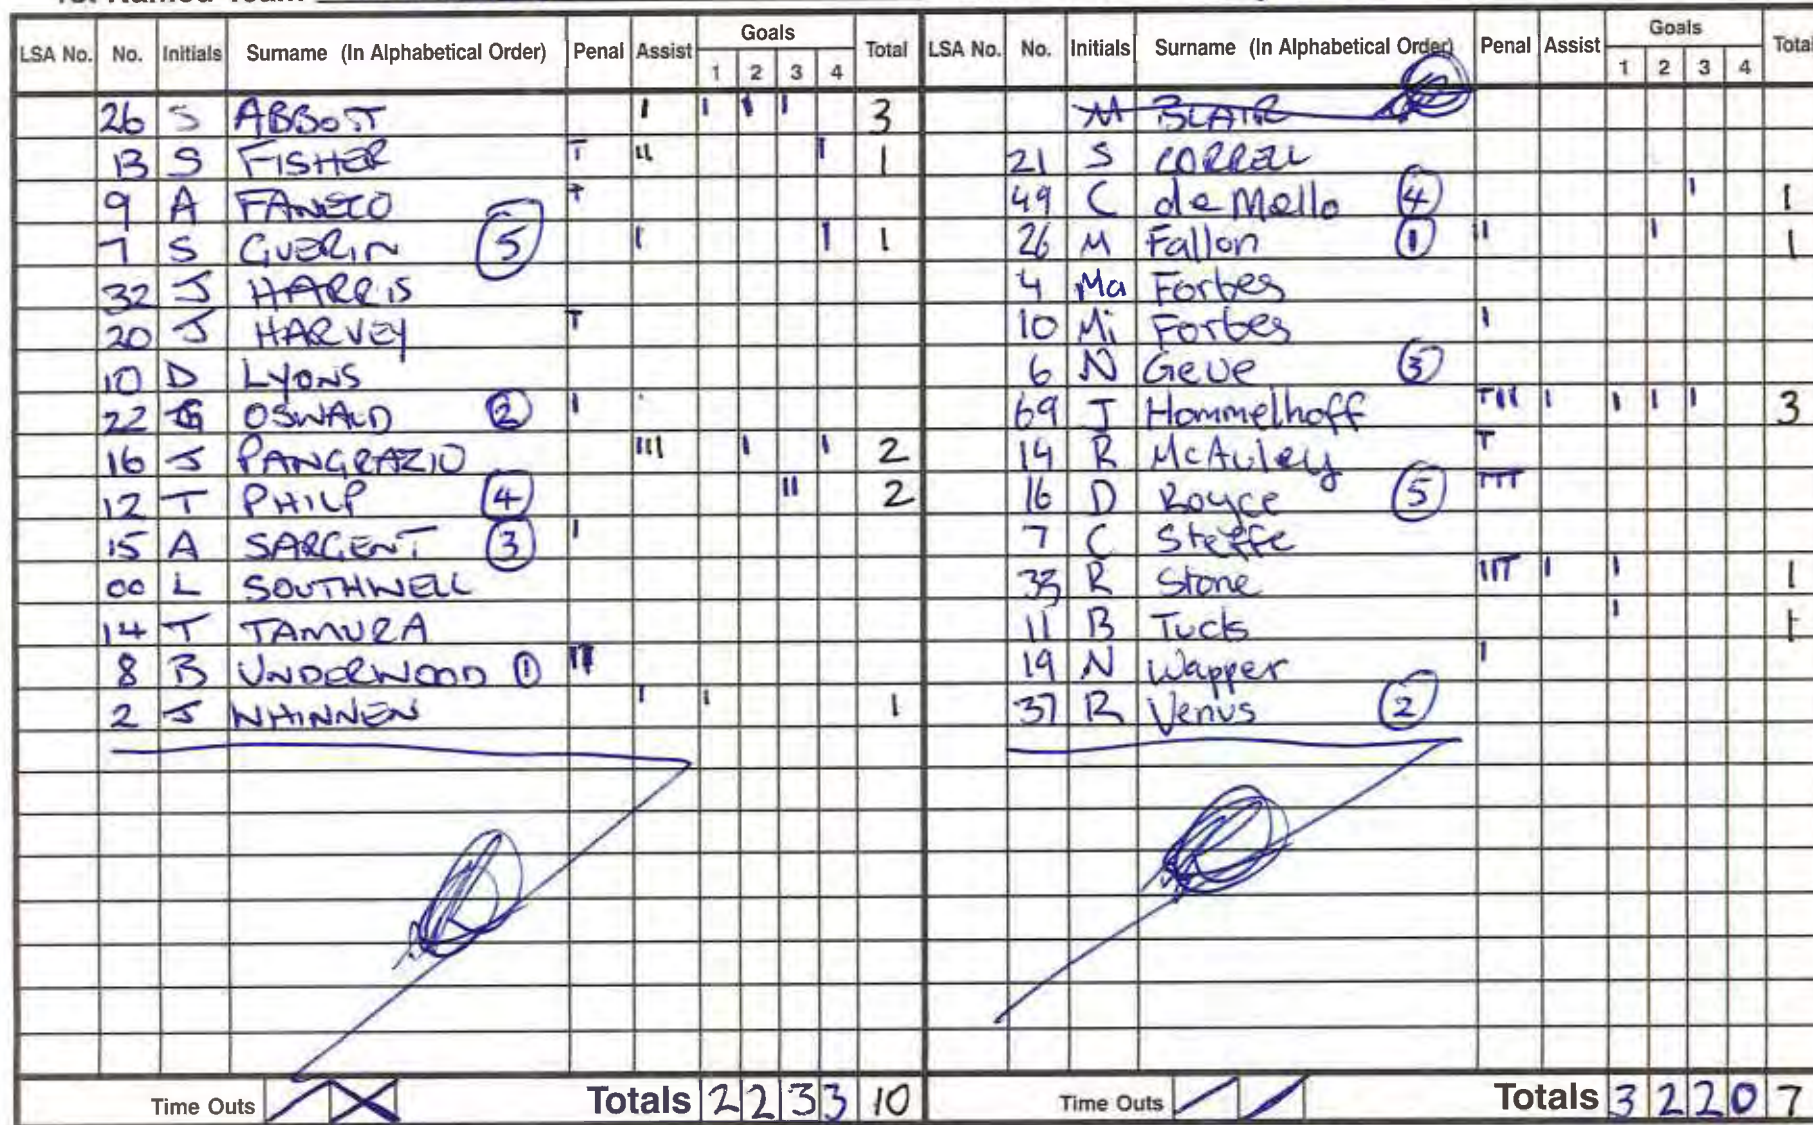 1st Named Team
LSA No. No. Initials Surname (In Alphabetical Order) Penal Assist Goals 1 2 3 4 Total
26 S ABBOTT I I I I 3
13 S FISHER T II I 1
9 A FANECO T
7 S GUERIN 5 I I 1
32 J HARRIS
20 J HARVEY T
10 D LYONS
22 G OSWALD 2 I
16 J PANGRAZIO III I I 2
12 T PHILP 4 II 2
15 A SARGENT 3 I
00 L SOUTHWELL
14 T TAMURA
8 B UNDERWOOD 1
2 J WHINNEN I I 1
Time Outs Totals 2 2 3 3 10
LSA No. No. Initials Surname (In Alphabetical Order) Penal Assist Goals 1 2 3 4 Total
M BLAIR
21 S CORREL
49 C de Mello 4 I 1
26 M Fallon 1 II I 1
4 Ma Forbes
10 Mi Forbes I
6 N Geue 3
69 J Hommelhoff TII I I I I 3
14 R McAuley T
16 D Royce 5 TTT
7 C Steffe
33 R Stone IIT I I 1
11 B Tucks I 1
19 N Wapper I
37 R Venus 2
Time Outs Totals 3 2 2 0 7